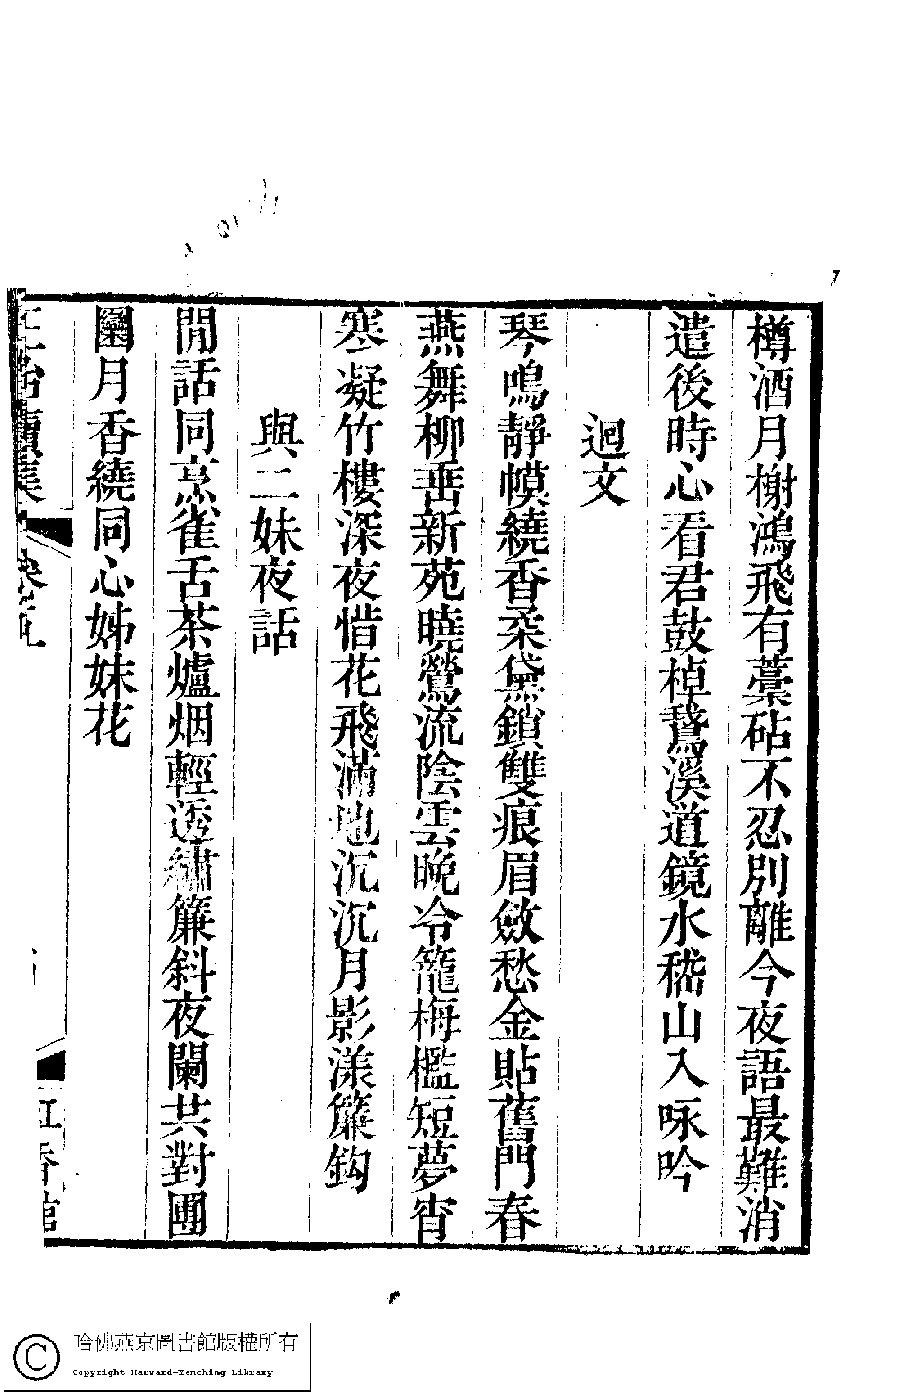 樽酒月榭鴻飛有藁砧不忍別離今夜語最難消
遣後時心看君鼓棹鵞溪道鏡水嵇山入咏吟
迴文
琴鳴靜幙繞香柔黛鎖雙痕眉斂愁金貼舊門春
燕舞柳垂新苑曉鶯流陰雲晚冷籠梅檻短夢宵
寒凝竹樓深夜惜花飛滿地沉沉月影漾簾鈎
與二妹夜話
閒話同烹雀舌茶爐烟輕透繡簾斜夜闌共對團
圞月香繞同心姊妹花
紅香館
哈佛燕京圖書館版權所有
Copyright Harvard-Yenching Library